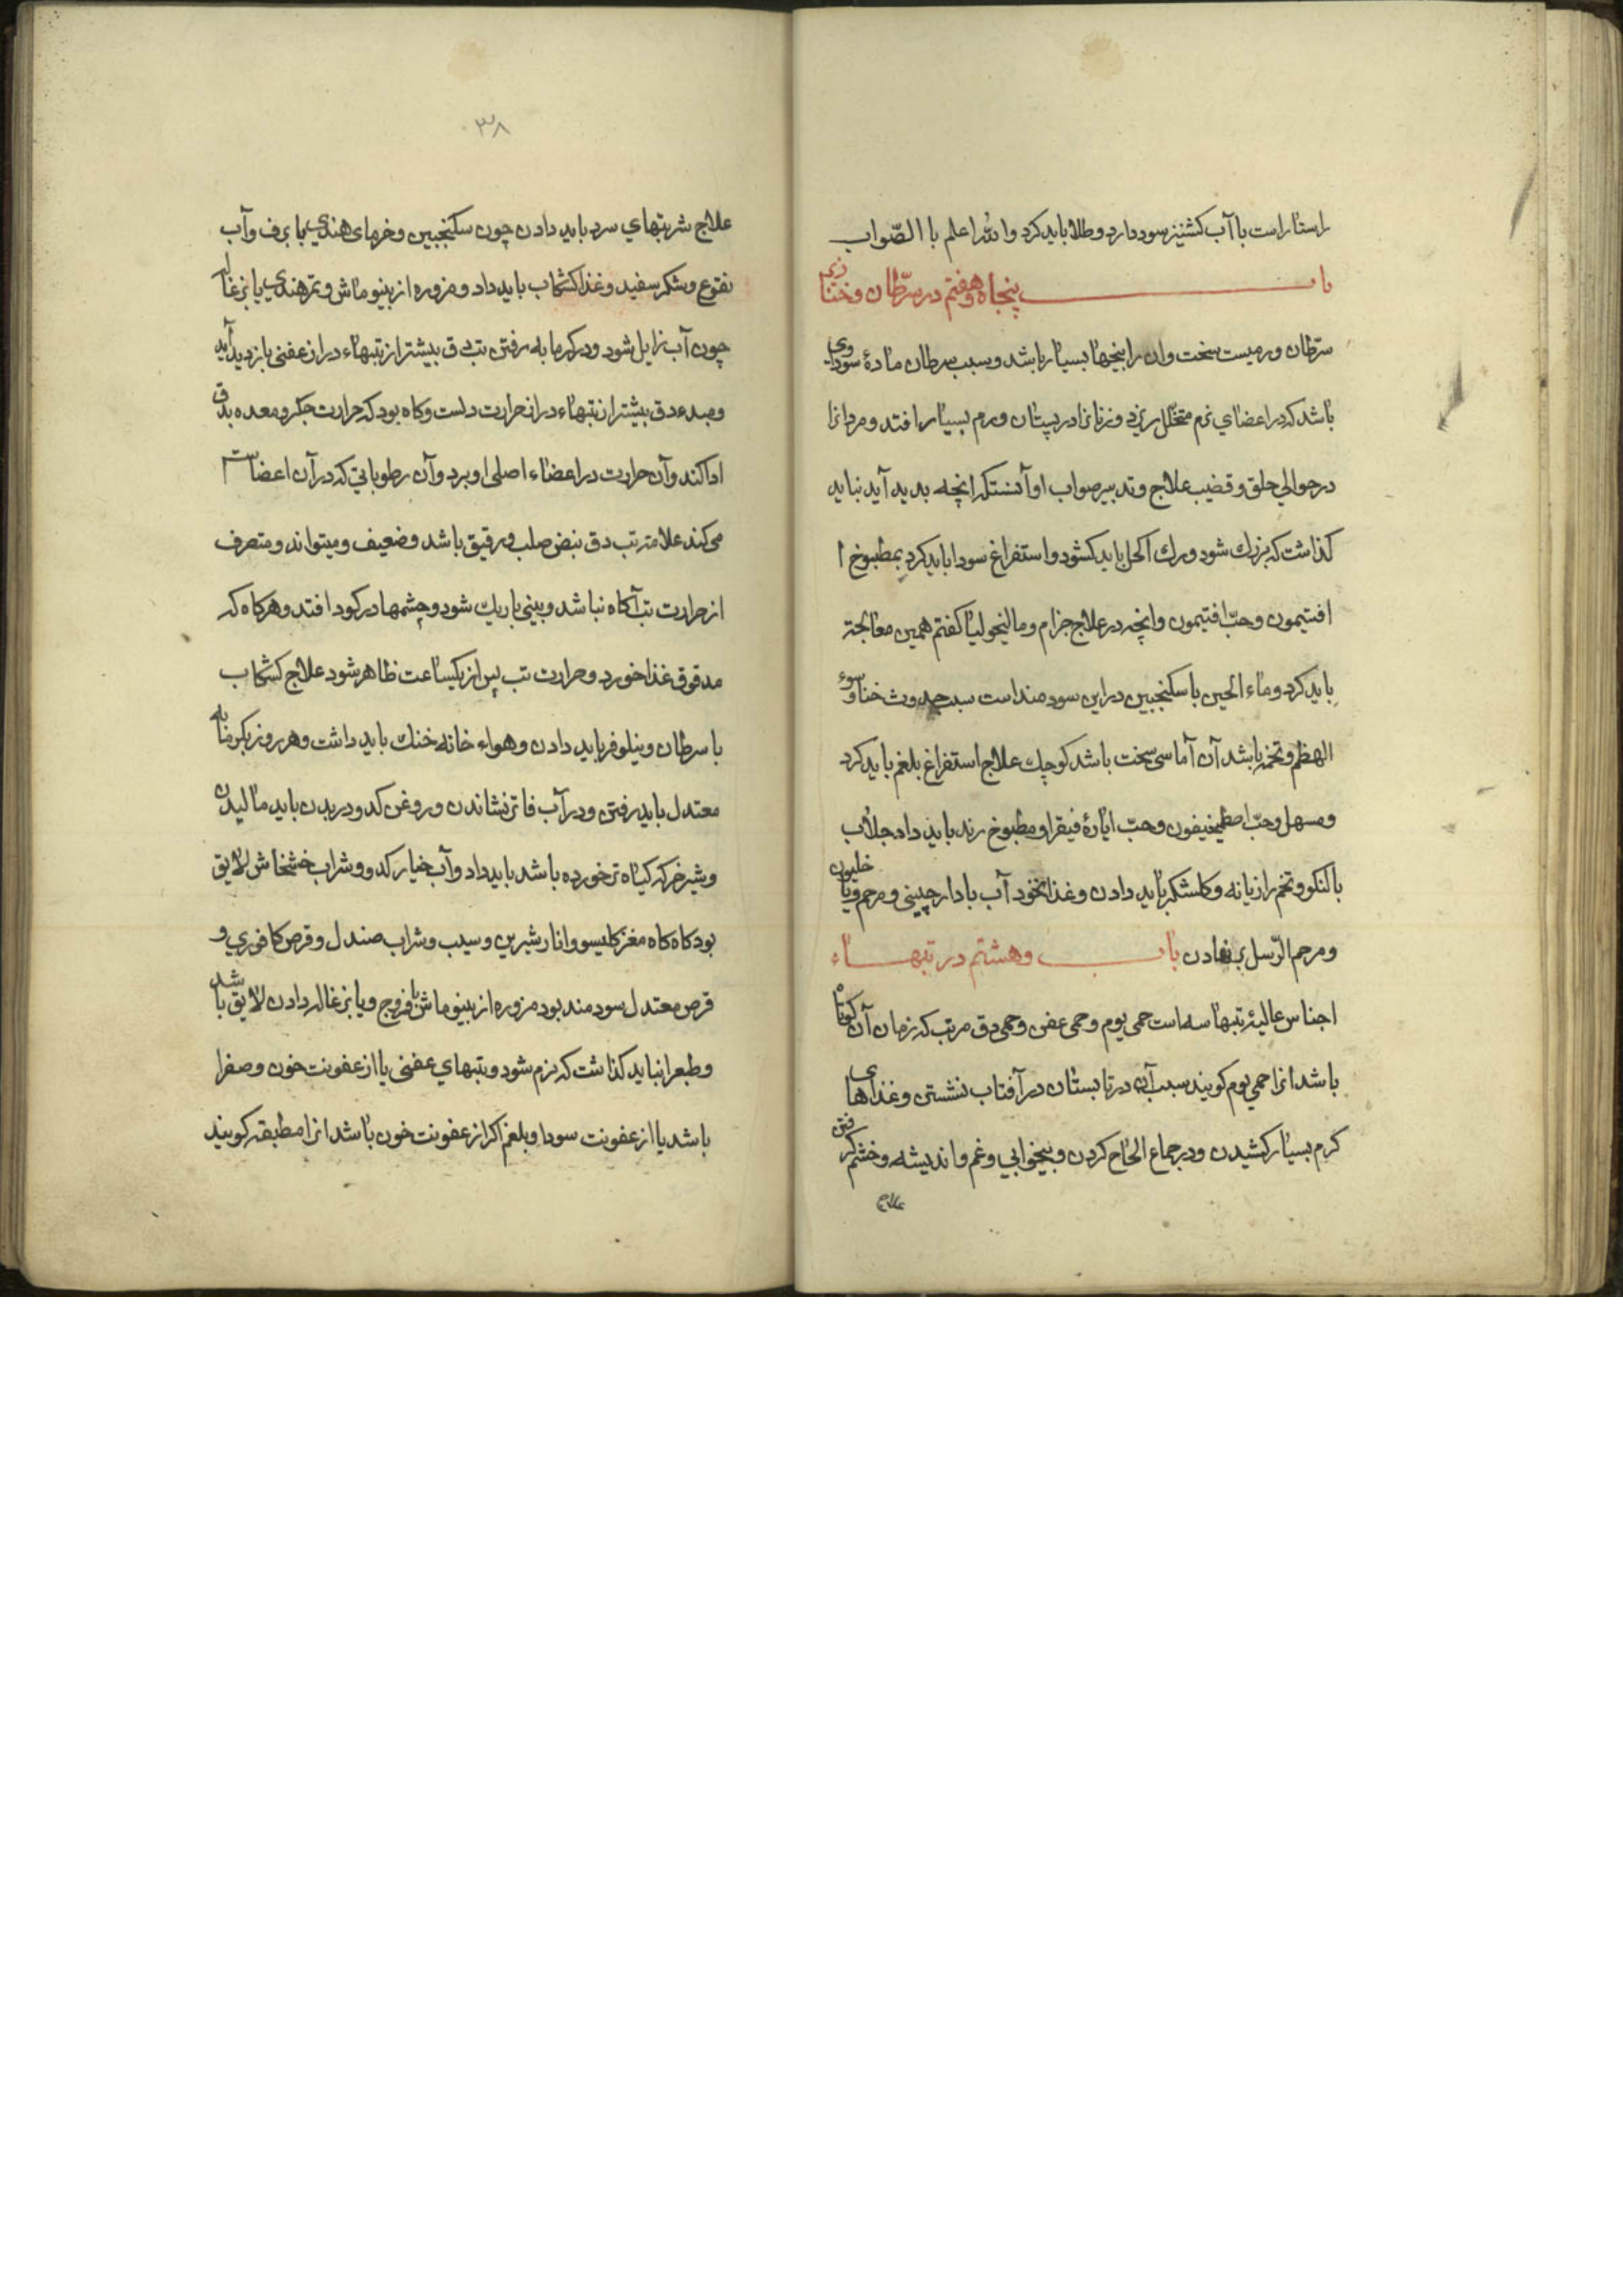 راستاراست با آب کشنیز سود دارد و طلا باید کرد والله اعلم باالصّواب
باب پنجاه وهفتم در سرّطان وخنازیر
سرّطان ورمیست سخت وان را بیخها بسیار باشد وسبب سرطان مادهٔ سوداوی
باشد که در اعضای نرم متخلّل ریزد وزنانرا در پستان ورم بسیار افتد ومردانرا
در حوالی حلق وقضیب علاج وتدبیر صواب او آنستکه انچه بدید آید نباید
کذاشت که بزرك شود ورك اکحل باید کشود واستفراغ سودا باید کرد بمطبوخ ا
افتیمون وحبّ افتیمون وانچه در علاج جزام ومالیخولیا کفتم همین معالجة
باید کرد وماء الجبن با سکنجبین دراین سودمنداست سبب حدوث خنا وسوء
الهظم وتخمه باشد آن آماسی سخت باشد کوچك علاج استفراغ بلغم باید کرد
ومسهل وحبّ اصطمخیقون وحبّ ایارهٔ فیقرا ومطبوخ رند باید داد جلاب
بالنکو وتخم رازیانه وکلشکر باید دادن وغذا نخود آب با دارچینی ومرحم دیاخلیون
ومرحم الرّسل بر نهادن باب وهشتم در تبهاء
اجناس عالیهٔ تبها سه است حمی یوم وحمی عفن وحمی دق مرتب که زمان آن کوتاه
باشد انرا حمی یوم کویند سبب آن در تابستان در آفتاب نشستن وغذاهای
کرم بسیار کشیدن ودر جماع الحاح کردن وبیخوابی وغم واندیشه وخشم کرفتن
علاج
۳۸
علاج شربتهای سرد باید دادن چون سکنجبین وخرمای هندی با برف وآب
نقوع وشکر سفید وغذا کشکاب باید داد ومزوره از بینو ماش وتمرهندی یا بزغاله
چون آب زایل شود ودر کرمابه رفتن تب دق بیشتر از تبهاء دراز عفنی بازدید آید
ومبدء دق بیشتر از تبهاء دراز حرارت دلست وکاه بود که حرارت جکر ومعده بدق
ادا کند وآن حرارت در اعضاء اصلی او برد وآن رطوباتی که در آن اعضاست ا
می کند علامتر تب دق نبض صلب ورقیق باشد وضعیف ومیتواند ومتصرف
از حرارت تب آکاه نباشد وبینی باریك شود وچشمها در کود افتد وهرکاه که
مدقوق غذا خورد وحرارت تب پس از یکساعت ظاهر شود علاج کشکاب
با سرطان ونیلوفر باید دادن وهواء خانه خنك باید داشت وهر روز بکرمابه
معتدل باید رفتن ودر آب فاتر نشاندن وروغن کدو در بدن باید مالیدن
وشیر خر که کیاه تر خورده باشد باید داد وآب خیار کدو وشراب خشخاش لایق
بود کاه کاه مغز کلیسو وانار شیرین وسیب وشراب صندل وقرص کافوری و
قرص معتدل سودمند بود مزوره از بینو ماش با فروج ویا بزغاله دادن لایق باشد
وطبعرا نباید کذاشت که نرم شود وتبهای عفنی یا از عفونت خون وصفرا
باشد یا از عفونت سودا وبلغم اکر از عفونت خون باشد انرا مطبقه کویند